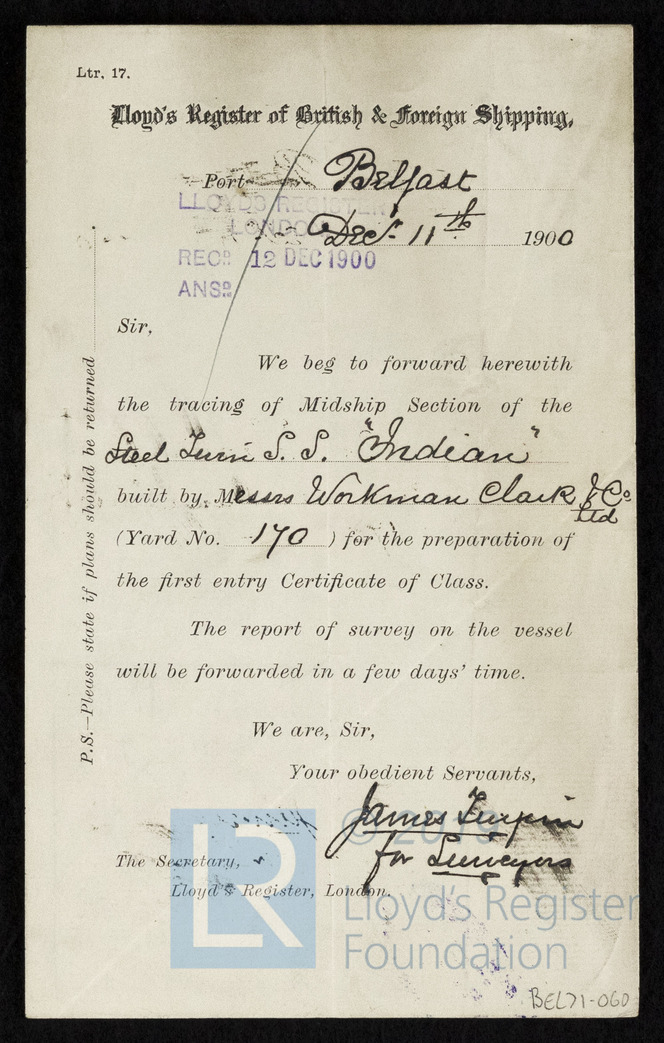 Ltr. 17.
Lloyd's Register of British & Foreign Shipping,
Port Belfast
LLOYD'S REGISTER
LONDON
Decr. 11th 1900
RECD 12 DEC 1900
ANSD
Sir,
We beg to forward herewith
the tracing of Midship Section of the
Steel Twin S. S. "Indian"
built by Messrs Workman Clark & Co. Ltd
(Yard No. 170) for the preparation of
the first entry Certificate of Class.
The report of survey on the vessel
will be forwarded in a few days' time.
We are, Sir,
Your obedient Servants,
James Turpin
for Surveyors
The Secretary,
Lloyd's Register, London.
P.S.—Please state if plans should be returned
LR
© 2019
Lloyd's Register
Foundation
BEL71-060